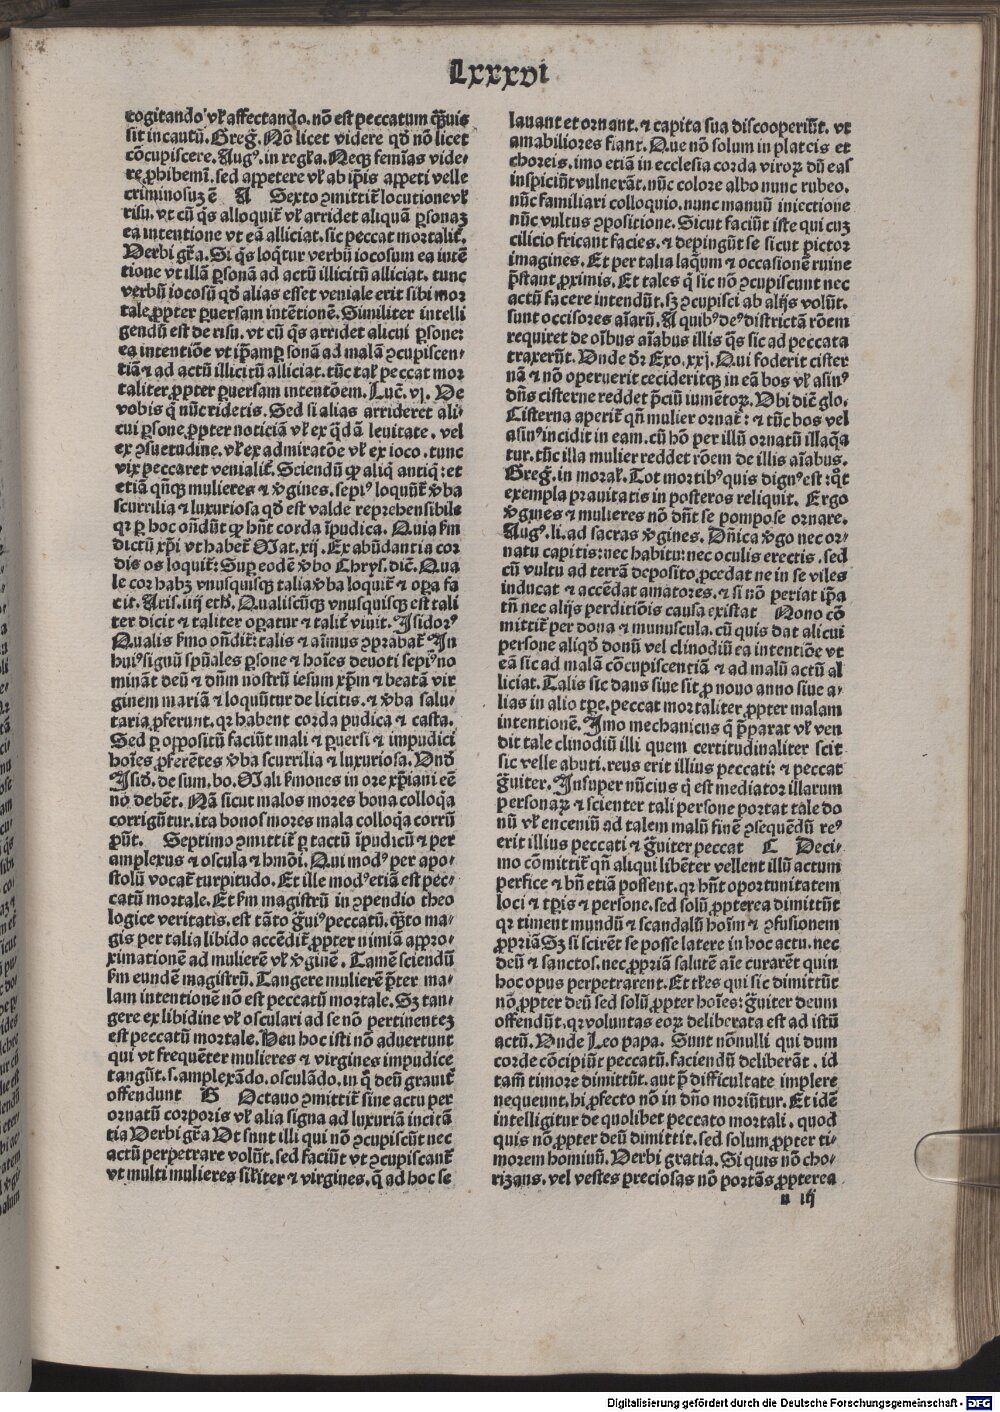 Lxxxvi
cogitando vl̕ affectando. nō est peccatum q̄uis
sit incautū. Greg̃. Nō licet videre qd̕ nō licet
cōcupiscere. Aug⁹. in reg̕la. Neqꝫ femīas vide/
re ꝓhibemī. sed appetere vl̕ ab ip̄is appeti velle
criminosuꝫ ē A Sexto ↄmittit̕ locutione vl̕
risu. vt cū q̄s alloquit̕ vl̕ arridet aliquā ꝑsonaꝫ
ea intentione vt eā alliciat. sic peccat mortalit̕.
Verbi gr̃a. Si q̄s loq̄tur verbū iocosum ea intē
tione vt illā ꝑsonā ad actū illicitū alliciat. tunc
verbū iocosū qd̕ alias esset veniale erit sibi mor
tale ꝓpter ꝑuersam intētionē. Similiter intelli
gendū est de risu. vt cū q̄s arridet alicui ꝑsone:
ea intentiōe vt ip̄am ꝑsonā ad malā ↄcupiscen/
tiā ⁊ ad actū illicitū alliciat. tūc tal̕ peccat mor
taliter ꝓpter ꝑuersam intentōem. Luc̄. vj. Ve
vobis q̄ nūc ridetis. Sed si alias arrideret ali/
cui ꝑsone ꝓpter noticiā vl̕ ex q̄dā leuitate. vel
ex ↄsuetudine. vl̕ ex admiratōe vl̕ ex ioco. tunc
vix peccaret venialit̕. Sciendū qꝙ aliq̄ antiq̄: et
etiā qn̄qꝫ mulieres ⁊ v̕gines. sepi⁹ loquūt̕ v̕ba
scurrilia ⁊ luxuriosa qd̕ est valde reprehensibile
qꝛ ꝑ hoc ondūt qꝙ hn̄t corda īpudica. Quia s̕m
dictū xp̄i vt habet̕ Mat. xij. Ex abūdantia cor
dis os loquit̕: Suꝑ eodē v̕bo Chrys. dic̄. Qua
le cor habꝫ vnusquisqꝫ talia v̕ba loquit̕ ⁊ oꝑa fa
cit. Aris. iiij eth̕. Qualiscūqꝫ vnusquisqꝫ est tali
ter dicit ⁊ taliter oꝑatur ⁊ talit̕ viuit. Isidor⁹
Qualis s̕mo ondit̕: talis ⁊ aīmus ↄprobat̕ In
hui⁹ signū spūales ꝑsone ⁊ hoīes deuoti sepi⁹ no
minant deū ⁊ dn̄m nostrū iesum xp̄m ⁊ beatā vir
ginem mariā ⁊ loquūtur de licitis. ⁊ v̕ba salu/
taria ꝓferunt. qꝛ habent corda pudica ⁊ casta.
Sed ꝑ oppositū faciūt mali ⁊ ꝑuersi ⁊ impudici
hoīes ꝓferētes v̕ba scurrilia ⁊ luxuriosa. Vnd̕
Isid̕. de sum. bo. Mali s̕mones in ore xp̄iani eē
nō debēt. Nā sicut malos mores bona colloq̄a
corrigūtur. ita bonos mores mala colloq̄a corrū
pūt. Septimo ↄmittit̕ ꝑ tactū īpudicū ⁊ per
amplexus ⁊ oscula ⁊ hmōi. Qui mod⁹ per apo/
stolū vocat̕ turpitudo. Et ille mod⁹ etiā est pec/
catū mortale. Et s̕m magistrū in ↄpendio theo
logice veritatis. est tāto g̃ui⁹ peccatū. q̄to ma/
gis per talia libido accēdit̕ ꝓpter nimiā appro/
ximationē ad mulierē vl̕ v̕ginē. Tamē sciendū
s̕m eundē magistrū. Tangere mulierē p̄ter ma/
lam intentionē nō est peccatū mortale. Sꝫ tan/
gere ex libidine vl̕ osculari ad se nō pertinenteꝫ
est peccatū mortale. Heu hoc isti nō aduertunt
qui vt frequēter mulieres ⁊ virgines impudice
tangūt. s. amplexādo. osculādo. in q̄ deū grauit̕
offendunt B Octauo ↄmittit̕ sine actu per
ornatū corporis vl̕ alia signa ad luxuriā incitā
tia Verbi gr̃a Vt sunt illi qui nō ↄcupiscūt nec
actū perpetrare volūt. sed faciūt vt ↄcupiscant̕
vt multi mulieres sil̕iter ⁊ virgines. q̄ ad hoc se
lauant et ornant. ⁊ capita sua discooperiūt. vt
amabiliores fiant. Que nō solum in plateis et
choreis. imo etiā in ecclesia corda viroꝝ dū eas
inspiciūt vulnerāt. nūc colore albo nunc rubeo.
nūc familiari colloquio. nunc manuū iniectione
nūc vultus ↄpositione. Sicut faciūt iste qui cuꝫ
cilicio fricant facies. ⁊ depingūt se sicut pictor
imagines. Et per talia laq̄um ⁊ occasionē ruine
p̄stant ꝓximis. Et tales q̄ sic nō ↄcupiscunt nec
actū facere intendūt. sꝫ ↄcupisci ab alijs volūt.
sunt occisores aīarū. A quib⁹ de⁹ districtā rōem
requiret de oībus aīabus illis q̄s sic ad peccata
traxerūt. Vnde dr̃ Exo. xxj. Qui foderit cister
nā ⁊ nō operuerit cecideritqꝫ in eā bos vl̕ asin⁹
dn̄s cisterne reddet p̄ciū iumētoꝝ. Vbi dic̄ glo.
Cisterna aperit̕ qn̄ mulier ornat̕: ⁊ tūc bos vel
asin⁹ incidit in eam. cū hō per illū ornatū illaq̄a
tur. tūc illa mulier reddet rōem de illis aīabus.
Greg̃. in moral̕. Tot mortib⁹ quis dign⁹ est: qͦt
exempla prauitatis in posteros reliquit. Ergo
v̕gines ⁊ mulieres nō dn̄t se pompose ornare.
Aug⁹. li. ad sacras v̕gines. Dn̄ica v̕go nec or/
natu capitis: nec habitu: nec oculis erectis. sed
cū vultu ad terrā deposito ꝓcedat ne in se viles
inducat ⁊ accēdat amatores. ⁊ si nō periat ip̄a
tn̄ nec alijs perditiōis causa existat Nono cō
mittit̕ per dona ⁊ munuscula. cū quis dat alicui
persone aliqd̕ donū vel clinodiū ea intentiōe vt
eā sic ad malā cōcupiscentiā ⁊ ad malū actū al
liciat. Talis sic dans siue sit ꝓ nouo anno siue a/
lias in alio tꝑe. peccat mortaliter ꝓpter malam
intentionē. Imo mechanicus q̄ p̄parat vl̕ ven
dit tale clinodiū illi quem certitudinaliter scit
sic velle abuti. reus erit illius peccati: ⁊ peccat
g̃uiter. Insuper nūcius q̄ est mediator illarum
personaꝝ ⁊ scienter tali persone portat tale do
nū vl̕ enceniū ad talem malū finē ↄsequēdū re⁹
erit illius peccati ⁊ g̃uiter peccat C Deci/
mo cōmittit̕ qn̄ aliqui libēter vellent illū actum
perfice ⁊ bn̄ etiā possent. qꝛ hn̄t oportunitatem
loci ⁊ tꝑis ⁊ persone. sed solū ꝓpterea dimittūt
qꝛ timent mundū ⁊ scandalū hoīm ⁊ ↄfusionem
ꝓpriā Sꝫ si scirēt se posse latere in hoc actu. nec
deū ⁊ sanctos. nec ꝓpriā salutē aīe curarēt quin
hoc opus perpetrarent. Et tl̕es qui sic dimittūt
nō ꝓpter deū sed solū ꝓpter hoīes: g̃uiter deum
offendūt. qꝛ voluntas eoꝝ deliberata est ad istū
actū. Vnde Leo papa. Sunt nōnulli qui dum
corde cōcipiūt peccatū. faciendū deliberāt. id
tam̄ timore dimittūt. aut p̄ difficultate implere
nequeunt. hi ꝓfecto nō in dn̄o moriūtur. Et idē
intelligitur de quolibet peccato mortali. quod
quis nō ꝓpter deū dimittit. sed solum ꝓpter ti/
morem hominū. Verbi gratia. Si quis nō cho/
rizans. vel vestes preciosas nō portās ꝓpterea
n iij
Digitalisierung gefördert durch die Deutsche Forschungsgemeinschaft - DFG